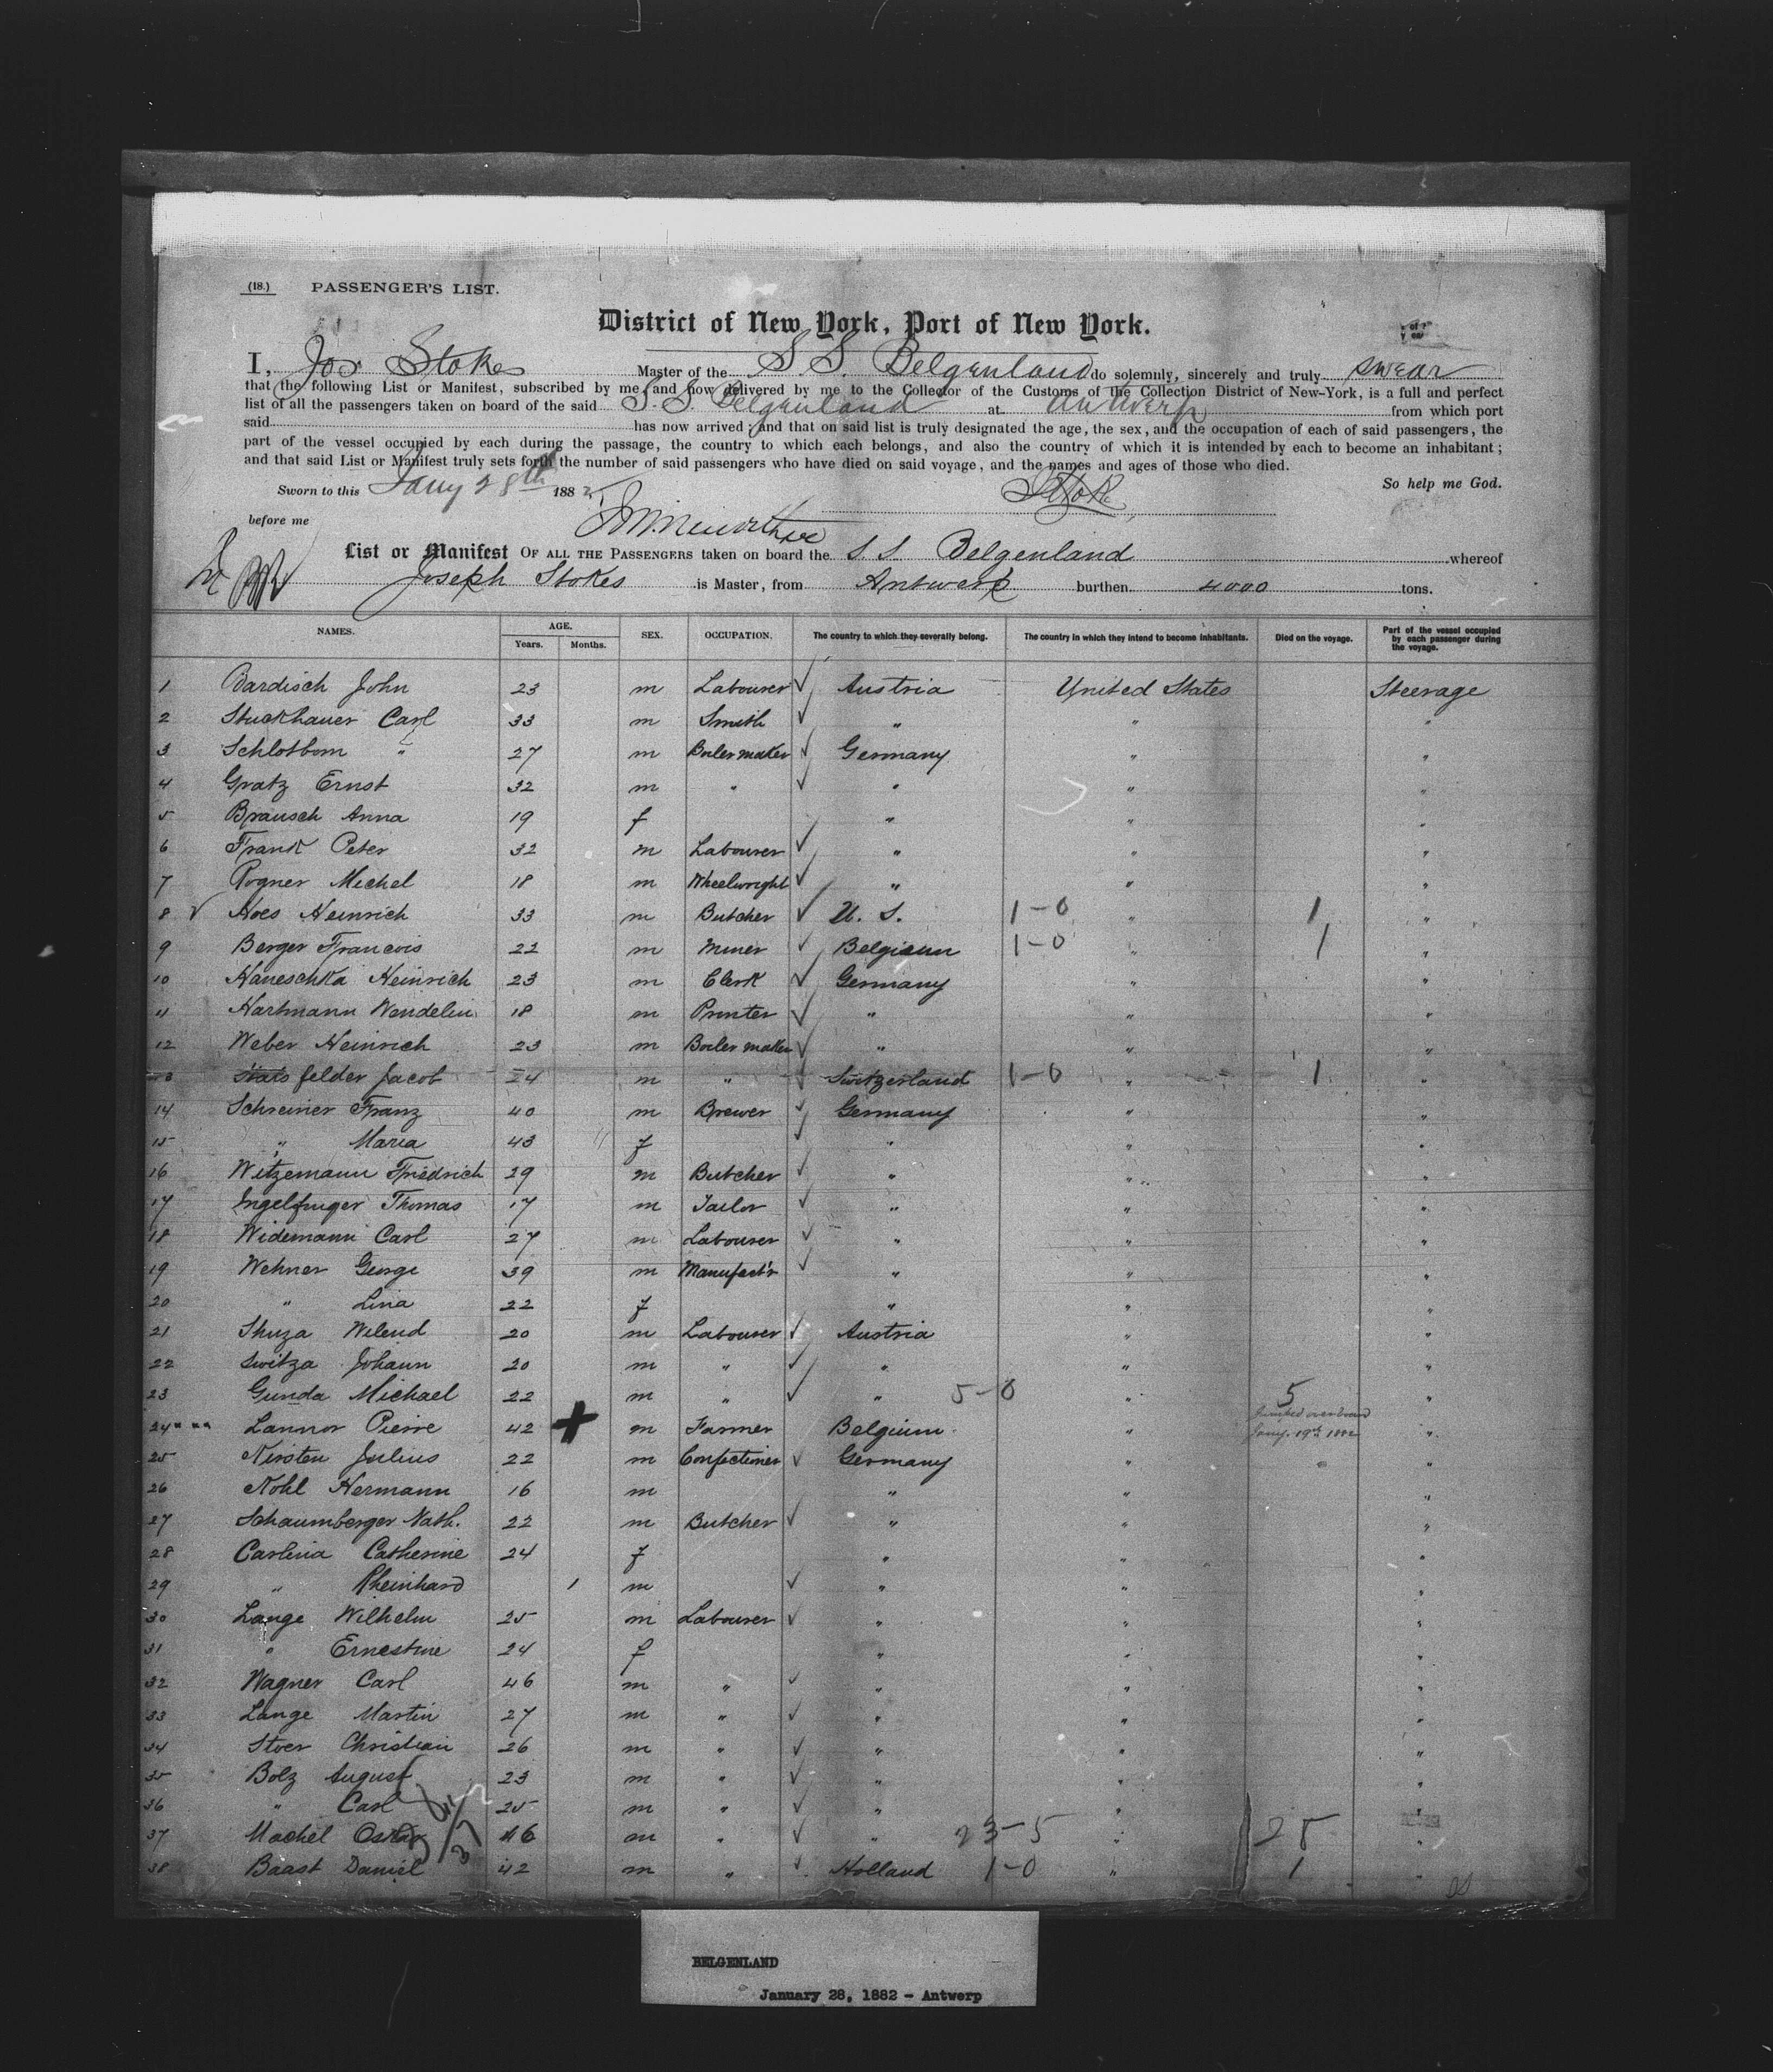 (18.) PASSENGER'S LIST.
District of New York, Port of New York.
I, Jos Stokes Master of the S. S. Belgenland do solemnly, sincerely and truly swear
that the following List or Manifest, subscribed by me and now delivered by me to the Collector of the Customs of the Collection District of New-York, is a full and perfect
list of all the passengers taken on board of the said S. S. Belgenland at Antwerp from which port
said has now arrived; and that on said list is truly designated the age, the sex, and the occupation of each of said passengers, the
part of the vessel occupied by each during the passage, the country to which each belongs, and also the country of which it is intended by each to become an inhabitant;
and that said List or Manifest truly sets forth the number of said passengers who have died on said voyage, and the names and ages of those who died.
Sworn to this Jany 28th 1882 JStokes So help me God.
before me
List or Manifest OF ALL THE PASSENGERS taken on board the S. S. Belgenland whereof
Joseph Stokes is Master, from Antwerp burthen 4000 tons.
NAMES. AGE. Years. Months. SEX. OCCUPATION. The country to which they severally belong. The country in which they intend to become inhabitants. Died on the voyage. Part of the vessel occupied by each passenger during the voyage.
1 Bardisch John 23 m Labourer Austria United States Steerage
2 Stuckhauer Carl 33 m Smith " " "
3 Schlotbom " 27 m Boiler maker Germany " "
4 Gratz Ernst 32 m " " " "
5 Brausch Anna 19 f " " "
6 Frank Peter 32 m Labourer " " "
7 Rogner Michel 18 m Wheelwright " " "
8 Hoes Heinrich 33 m Butcher U. S. 1-0 " 1 "
9 Berger Francois 22 m Miner Belgium 1-0 " 1 "
10 Haneschka Heinrich 23 m Clerk Germany " "
11 Hartmann Wendelin 18 m Printer " " "
12 Weber Heinrich 23 m Boiler maker " " "
felder Jacob 24 m " Switzerland 1-0 " 1 "
14 Schreiner Franz 40 m Brewer Germany " "
15 " Maria 43 f " " "
16 Witzemann Friedrich 29 m Butcher " " "
17 Ingelfinger Thomas 17 m Tailor " " "
18 Widemann Carl 27 m Labourer " " "
19 Wehner George 39 m Manufact'r " " "
20 " Lina 22 f " " "
21 Thuza Wilend 20 m Labourer Austria " "
22 Switza Johann 20 m " " " "
23 Gunda Michael 22 m " " 5-0 " 5 "
24 " " " Lannor Pierre 42 m Farmer Belgium " Jumped overboard Jany. 19th 1882 "
25 Nirsten Julius 22 m Confectioner Germany " "
26 Nohl Hermann 16 m " " "
27 Schaumberger Nath. 22 m Butcher " " "
28 Carlina Catherine 24 f " " "
29 " Rheinhard 1 m " " "
30 Lange Wilhelm 25 m Labourer " " "
31 " Ernestine 24 f " " "
32 Wagner Carl 46 m " " " "
33 Lange Martin 27 m " " " "
34 Stoer Christian 26 m " " " "
35 Bolz August 23 m " " " "
36 " Carl 25 m " " " "
37 Machel Oskar 46 m " " 23-5 " 28 "
38 Baast Daniel 42 m " Holland 1-0 " 1 "
BELGENLAND
January 28, 1882 - Antwerp